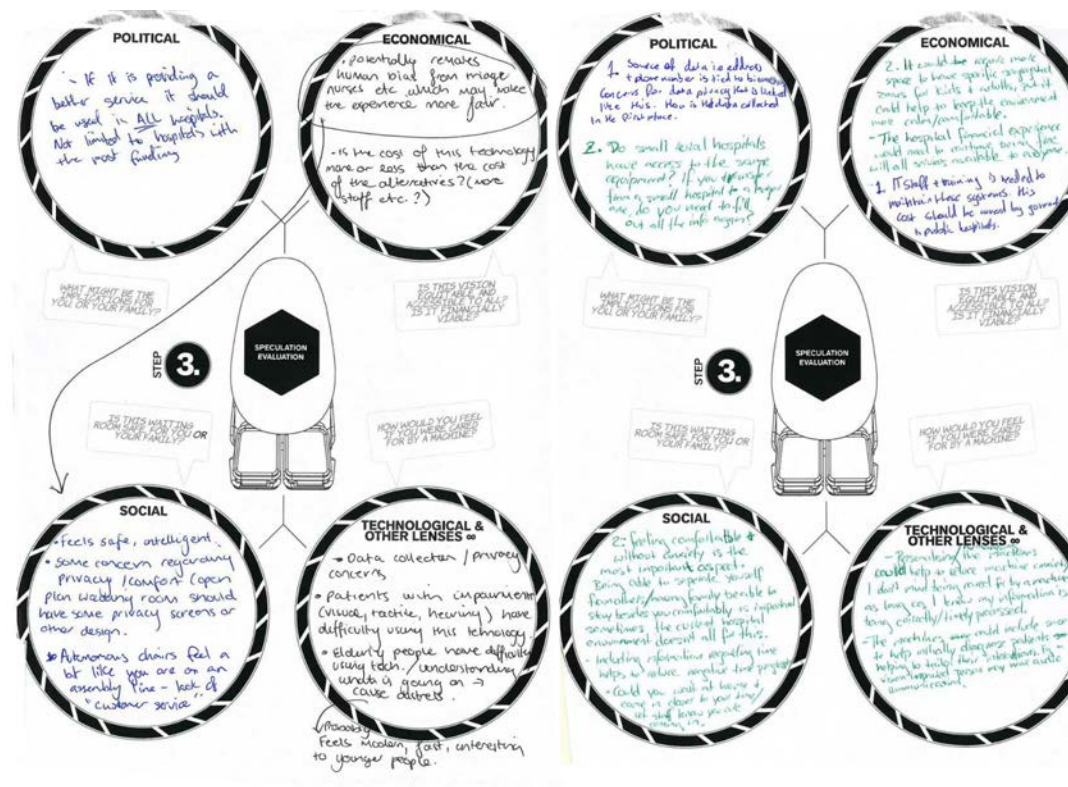 POLITICAL
- If it is providing a
better service it should
be used in ALL hospitals.
Not limited to hospitals with
the most funding
ECONOMICAL
• potentially removes
human bias from triage
nurses etc which may make
the experience more fair.
- is the cost of this technology
more or less than the cost
of the alternatives? (more
staff etc.?)
WHAT MIGHT BE THE
IMPLICATIONS FOR
YOU OR YOUR FAMILY?
IS THIS VISION
EQUITABLE AND
ACCESSIBLE TO ALL?
IS IT FINANCIALLY
VIABLE?
SPECULATION
EVALUATION
STEP
3.
IS THIS WAITING
ROOM SAFE FOR YOU OR
YOUR FAMILY?
HOW WOULD YOU FEEL
IF YOU WERE CARED
FOR BY A MACHINE?
SOCIAL
• Feels safe, intelligent.
• Some concern regarding
privacy / comfort (open
plan waiting room should
have some privacy screens or
other design.
• Autonomous chairs feel a
bit like you are on an
assembly line - lack of
"customer service"
TECHNOLOGICAL &
OTHER LENSES ∞
Data collection / privacy
concerns
• Patients with impairment
(visual, tactile, hearing) have
difficulty using this technology
• Elderly people have difficulty
using tech. / understanding
what is going on →
cause distress.
Feels modern, fast, interesting
to younger people.
POLITICAL
1. Source of data i.e address
+ phone number is tied to
concerns for data privacy that is linked
like this. How is the data collected
in the first place.
2. Do small hospitals
have access to the same
equipment? If you transfer
from a small hospital to a bigger
one, do you need to fill
out all the info again?
ECONOMICAL
2. It could require more
space to have specific
zones for kids + adults, but it
could help to keep the environment
more calm/comfortable.
- The hospital financial experience
would need to continue being free
with all services available to everyone.
- 1. IT staff + training is needed to
maintain these systems. this
cost should be by
in public hospitals.
WHAT MIGHT BE THE
IMPLICATIONS FOR
YOU OR YOUR FAMILY?
IS THIS VISION
EQUITABLE AND
ACCESSIBLE TO ALL?
IS IT FINANCIALLY
VIABLE?
SPECULATION
EVALUATION
STEP
3.
IS THIS WAITING
ROOM SAFE FOR YOU OR
YOUR FAMILY?
HOW WOULD YOU FEEL
IF YOU WERE CARED
FOR BY A MACHINE?
SOCIAL
2: feeling comfortable +
without anxiety is the
most important aspect.
Being able to separate yourself
from others/having family be able to
stay beside you comfortably is important
sometimes the current hospital
environment doesn't all for this.
- Including information regarding time
helps to reduce negative
- Could you wait at home &
come in closer to your time/
let staff know you are
coming in.
TECHNOLOGICAL &
OTHER LENSES ∞
- Personalising the
could help to reduce machine anxiety
I don't mind being cared for by a machine
as long as I know my information is
being correctly/ processed.
- The could include more
to help initially diagnose patients
helping to tailor their interactions
vision impaired person may need audio
communication.